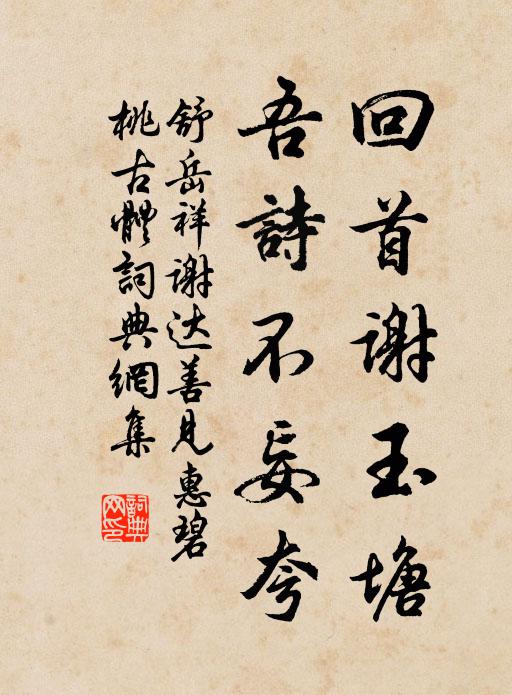 回首谢玉塘
吾詩不妄夸
舒岳祥谢达善見惠碧
桃古體詞典網集
詞典
网印